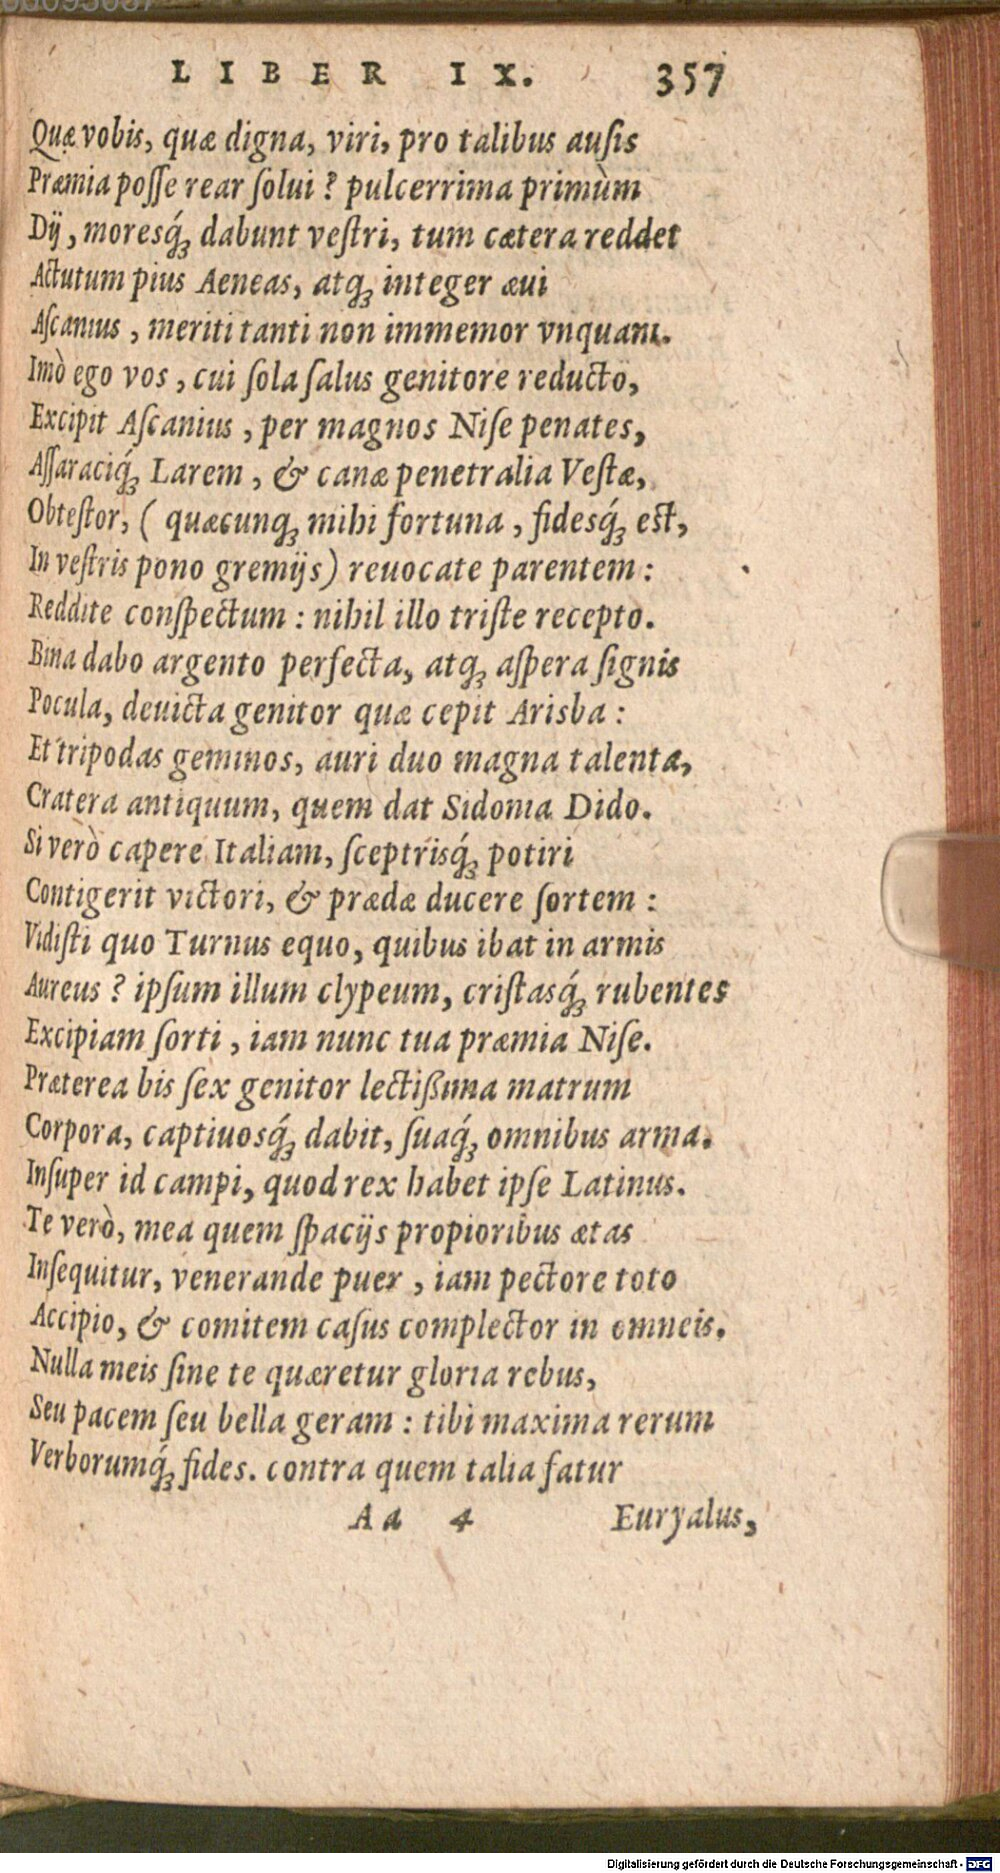 LIBER IX. 357
Quæ vobis, quæ digna, viri, pro talibus ausis
Præmia posse rear solui? pulcerrima primùm
Dij, moresq́; dabunt vestri, tum cætera reddet
Actutum pius Aeneas, atq; integer æui
Ascanius, meriti tanti non immemor vnquam.
Imò ego vos, cui sola salus genitore reducto,
Excipit Ascanius, per magnos Nise penates,
Assaraciq́; Larem, & canæ penetralia Vestæ,
Obtestor, (quæcunq; mihi fortuna, fidesq́; est,
In vestris pono gremijs) reuocate parentem:
Reddite conspectum: nihil illo triste recepto.
Bina dabo argento perfecta, atq; aspera signis
Pocula, deuicta genitor quæ cepit Arisba:
Et tripodas geminos, auri duo magna talenta,
Cratera antiquum, quem dat Sidonia Dido.
Si verò capere Italiam, sceptrisq́; potiri
Contigerit victori, & prædæ ducere sortem:
Vidisti quo Turnus equo, quibus ibat in armis
Aureus? ipsum illum clypeum, cristasq́; rubentes
Excipiam sorti, iam nunc tua præmia Nise.
Præterea bis sex genitor lectißima matrum
Corpora, captiuosq́; dabit, suaq́; omnibus arma.
Insuper id campi, quod rex habet ipse Latinus.
Te verò, mea quem spacijs propioribus ætas
Insequitur, venerande puer, iam pectore toto
Accipio, & comitem casus complector in omneis.
Nulla meis sine te quæretur gloria rebus,
Seu pacem seu bella geram: tibi maxima rerum
Verborumq́; fides. contra quem talia fatur
Aa 4 Euryalus,
Digitalisierung gefördert durch die Deutsche Forschungsgemeinschaft - DFG